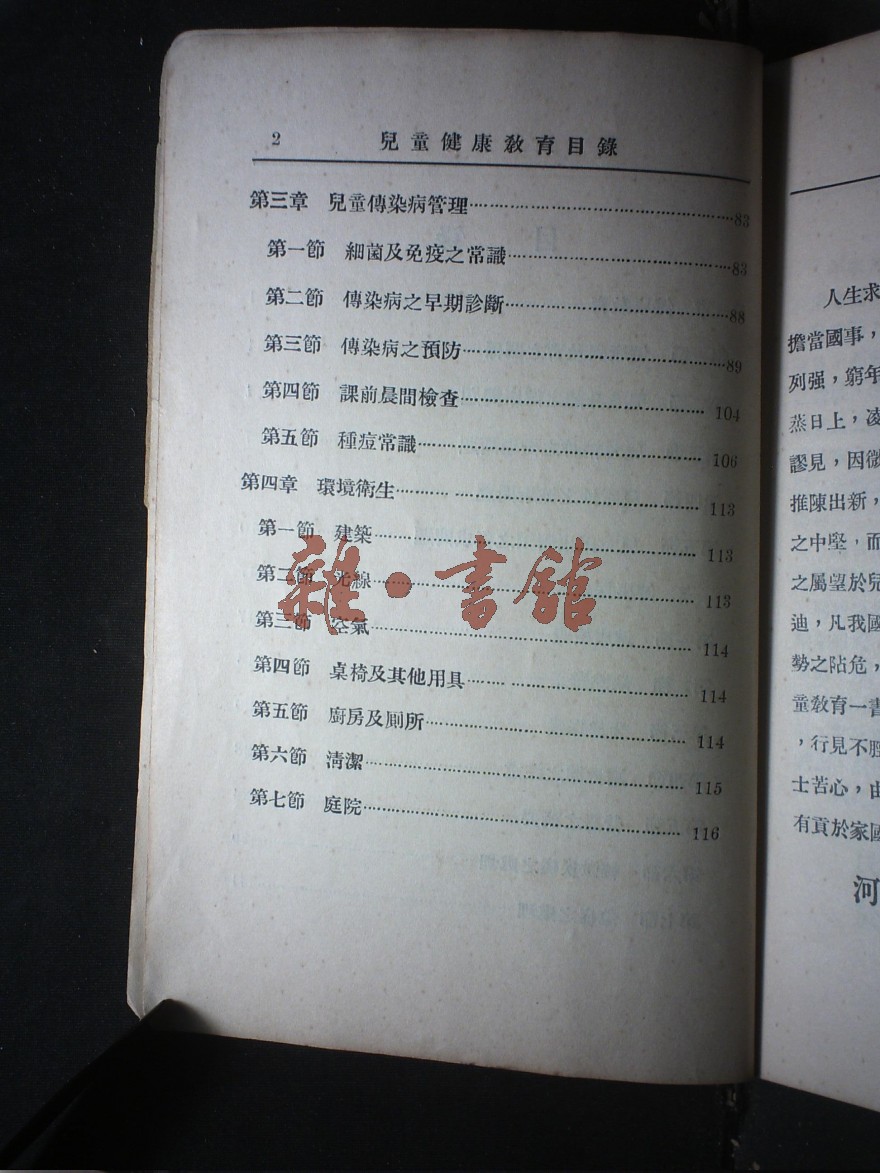 2 兒童健康敎育目錄
第三章 兒童傳染病管理……83
第一節 細菌及免疫之常識……83
第二節 傳染病之早期診斷……88
第三節 傳染病之預防……89
第四節 課前晨間檢查……104
第五節 種痘常識……106
第四章 環境衛生……113
第一節 建築……113
第二節 光線……113
第三節 空氣……114
第四節 桌椅及其他用具……114
第五節 廚房及厠所……114
第六節 淸潔……115
第七節 庭院……116
雜·書館
人生求
擔當國事，
列强，窮年
蒸日上，凌
謬見，因微
推陳出新，
之中堅，而
之屬望於兒
迪，凡我國
勢之阽危，
童敎育一書
，行見不脛
士苦心，由
有貢於家國
河